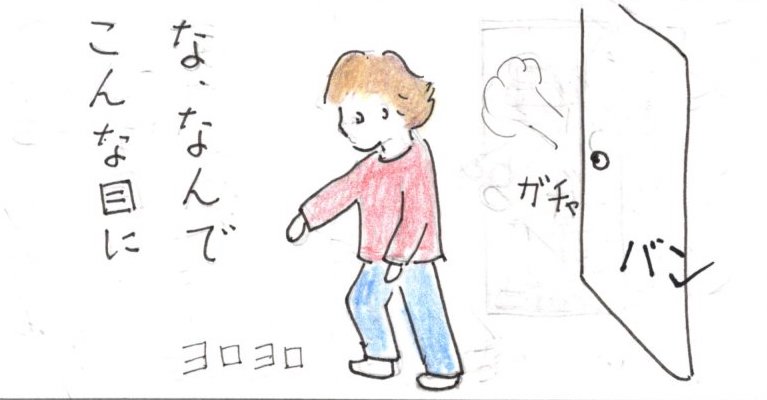 ガチャ
バン
な、なんで
こんな目に
ヨロヨロ